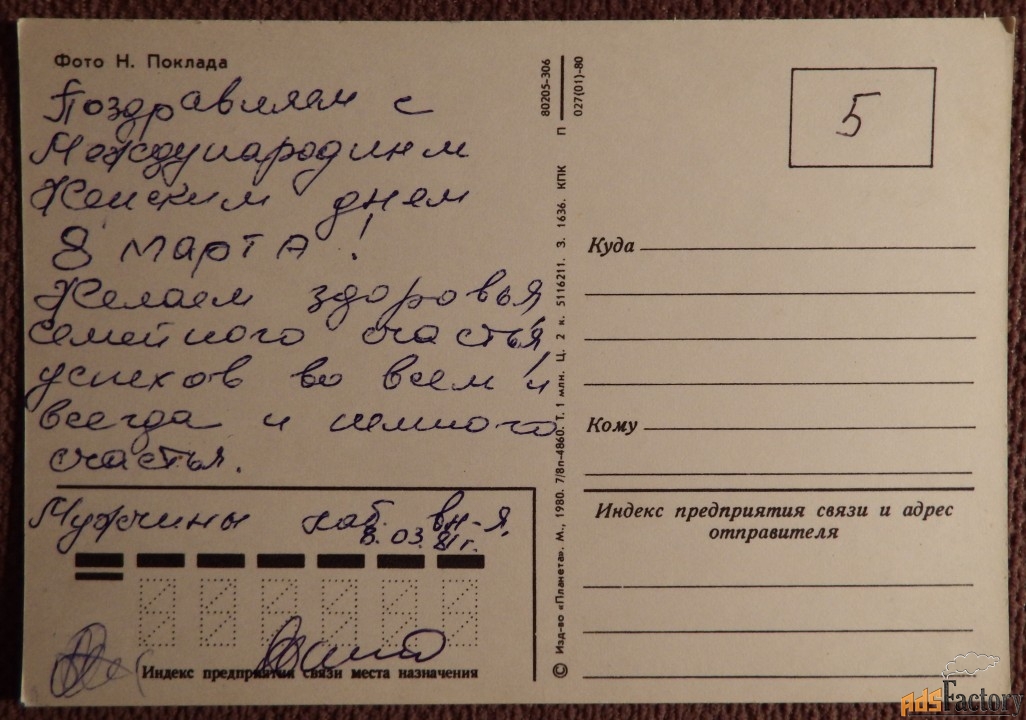 Фото Н. Поклада
Поздравляем с
Международным
Женским днем
8 марта!
Желаем здоровья,
семейного счастья,
успехов во всем и
всегда и немного
счастья.
Мужчины каб. вн-я.
8.03.81г.
Индекс предприятия связи места назначения
80205-306
027(01)-80
© Изд-во «Планета». М., 1980. 7/8п-4860. Т. 1 млн. Ц. 2 к. 5116211. З. 1636. КПК П
5
Куда
Кому
Индекс предприятия связи и адрес
отправителя
AdsFactory